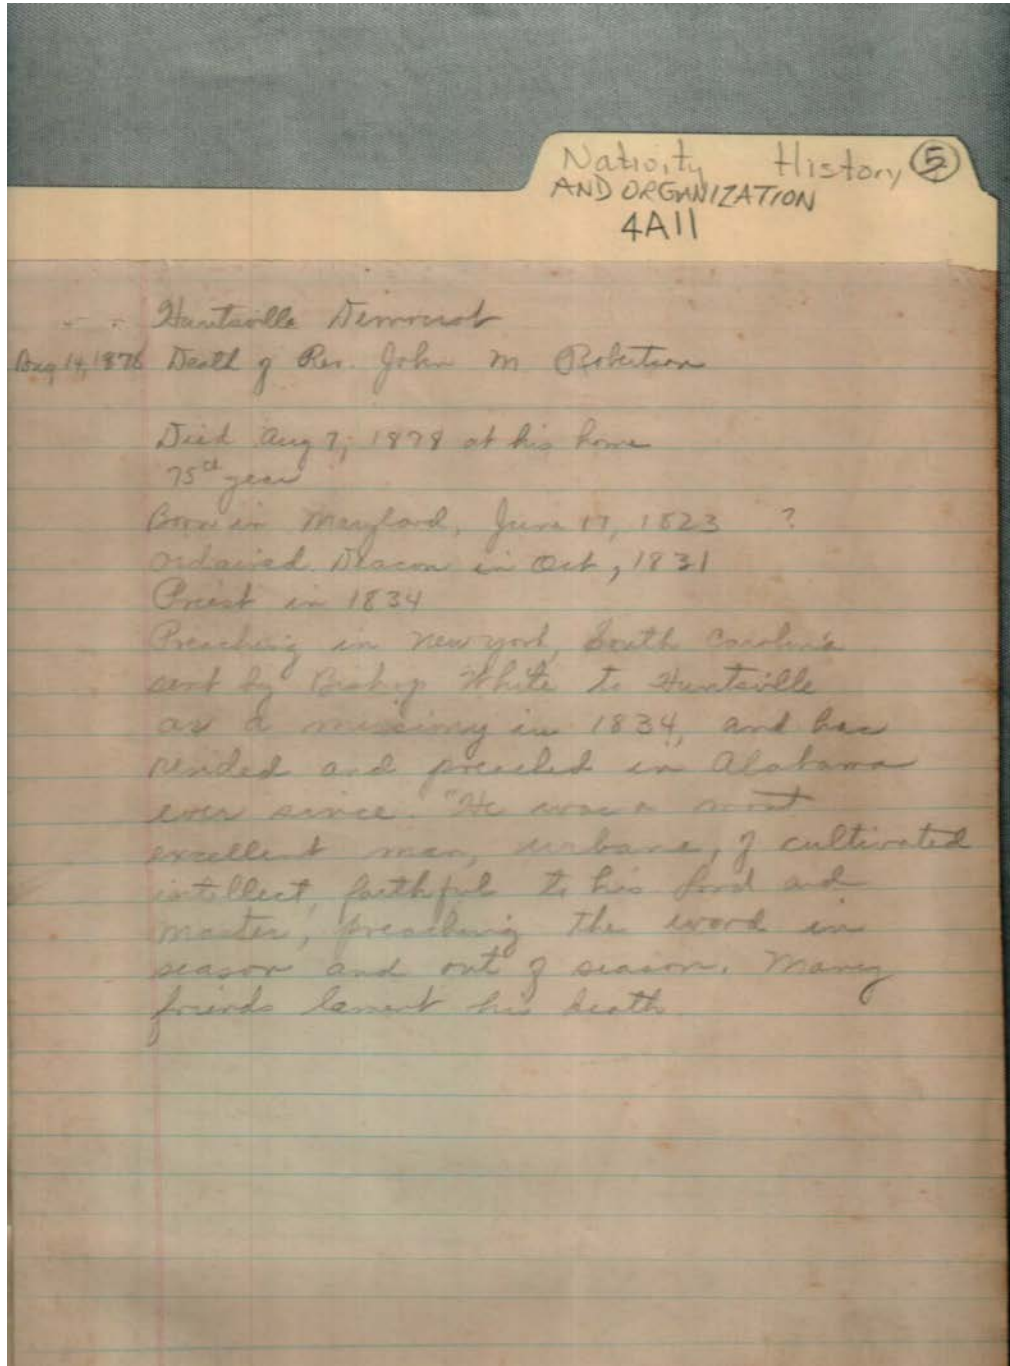 Nativity History 5
AND ORGANIZATION
4A11
Huntsville Democrat
Aug 14, 1878 Death of Rev. John M Robertson
Died Aug 7, 1878 at his home
75th year
Born in Maryland, June 17, 1823 ?
ordained Deacon in Oct, 1831
Priest in 1834
Preaching in New York, South Carolina
sent by Bishop White to Huntsville
as a in 1834, and has
and preached in Alabama
ever since. "He was a most
excellent man, urbane, of cultivated
intellect, faithful to his Lord and
master, preaching the word in
season and out of season. Many
friends lament his death